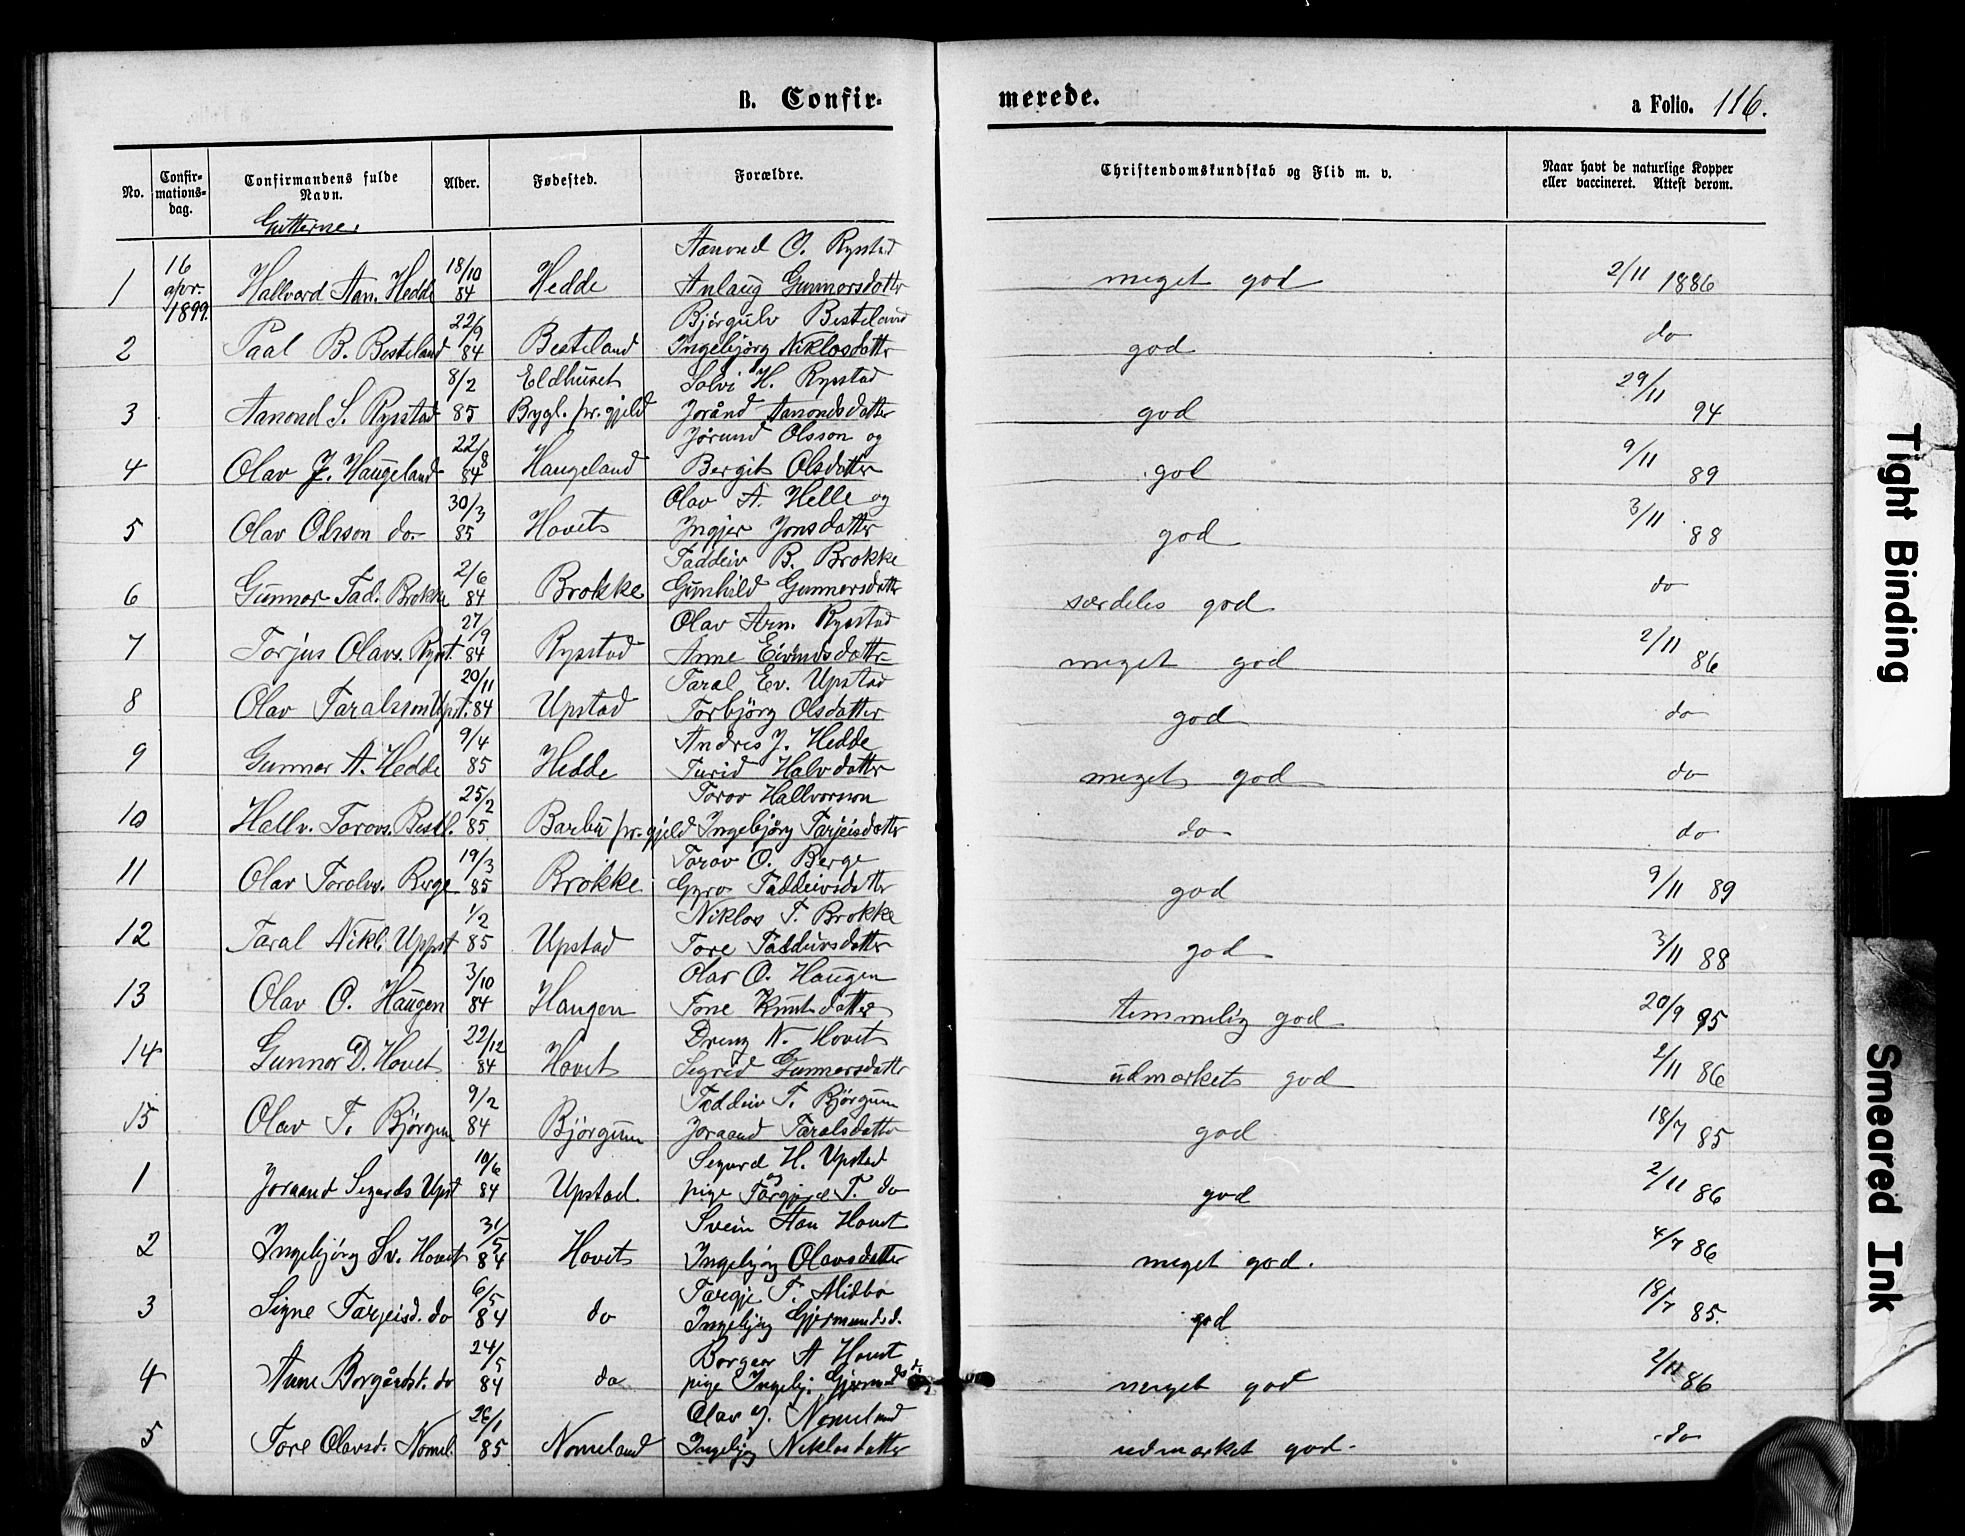 B. Confir-
merede.
a Folio. 116.
No.
Confir-
mations-
dag.
Confirmandens fulde
Navn.
Alder.
Fødested.
Forældre.
Christendomskundskab og Flid m. v.
Naar havt de naturlige Kopper
eller vaccineret. Attest derom.
Gutterne.
16 18/10 Aanond O. Rystad
1 apr. Hallvard Aan. Hedde 84 Hedde Anlaug Gunnarsdatter meget god 2/11 1886
1899. 22/9 Bjørgulv Besteland
2 Paal B. Besteland 84 Besteland Ingebjørg Niklosdatter god do
8/2 Eldhuset Solvi H. Rystad 29/11
3 Aanond S. Rystad 85 Bygl. pr.gjeld Jorånd Aanondsdatter god 94
22/8 Jørund Olsson og 9/11
4 Olav J. Haugeland 84 Haugeland Bergit Olsdatter god 89
30/3 Olav A. Helle og 3/11
5 Olav Olsson do 85 Hovet Ingjer Jonsdatter god 88
2/6 Taddeiv B. Brokke
6 Gunnar Tad. Brokke 84 Brokke Gunhild Gunnarsdatter særdeles god do
27/9 Olav Arn. Rystad 2/11
7 Torjus Olavs. Ryst. 84 Rystad Anne Eivindsdatter meget god 86
20/11 Taral Ev. Upstad
8 Olav Taralsson Upst. 84 Upstad Torbjörg Olsdatter god do
9/4 Andres J. Hedde
9 Gunnar A. Hedde 85 Hedde Turid Halvdatter meget god do
25/2 Torov Hallvorson
10 Hallv. Torovs. Bestl. 85 Barbu pr.gjeld Ingebjörg Tarjeisdatter do do
19/3 Torov O. Berge
11 Olav Torolvs. Berge 85 Brokke Gyro Taddeivsdatter god 9/11 89
1/2 Niklos T. Brokke
12 Taral Nikl. Uppst 85 Upstad Tore Taddeivsdatter god 3/11 88
3/10 Olav O. Haugen
13 Olav O. Haugen 84 Haugen Tone Knutsdatter temmelig god 20/9 95
22/12 Dreng N. Hovet
14 Gunnar D. Hovet 84 Hovet Sigrid Gunnarsdatter udmarket god 2/11 86
9/2 Taddeiv T. Bjørgum
15 Olav T. Bjørgum 84 Bjørgum Joraand Taralsdatter god 18/7 85
10/6 Sigurd H. Upstad
og
1 Joraand Sigurds Upst 84 Upstad. pige Targjerd T. do god 2/11 86
31/5 Svein Aan Hovet
2 Ingebjörg Sv. Hovet 84 Hovet Ingebjørg Olavsdatter meget god. 4/7 86
6/5 Targje T. Midbø
3 Signe Tarjeisd. do 84 do Ingebjørg Gjermundsd. god 18/7 85.
24/5 Borgar A Hovet
4 Anne Borgårdst. do 84 do pige Ingebj. Gjermundsd. meget god 2/11 86
26/1 Olav J. Nomeland
5 Tore Olavsd. Nomel. 85 Nomeland Ingebjørg Niklosdatter udmarket god. do
Tight Binding
Smeared Ink